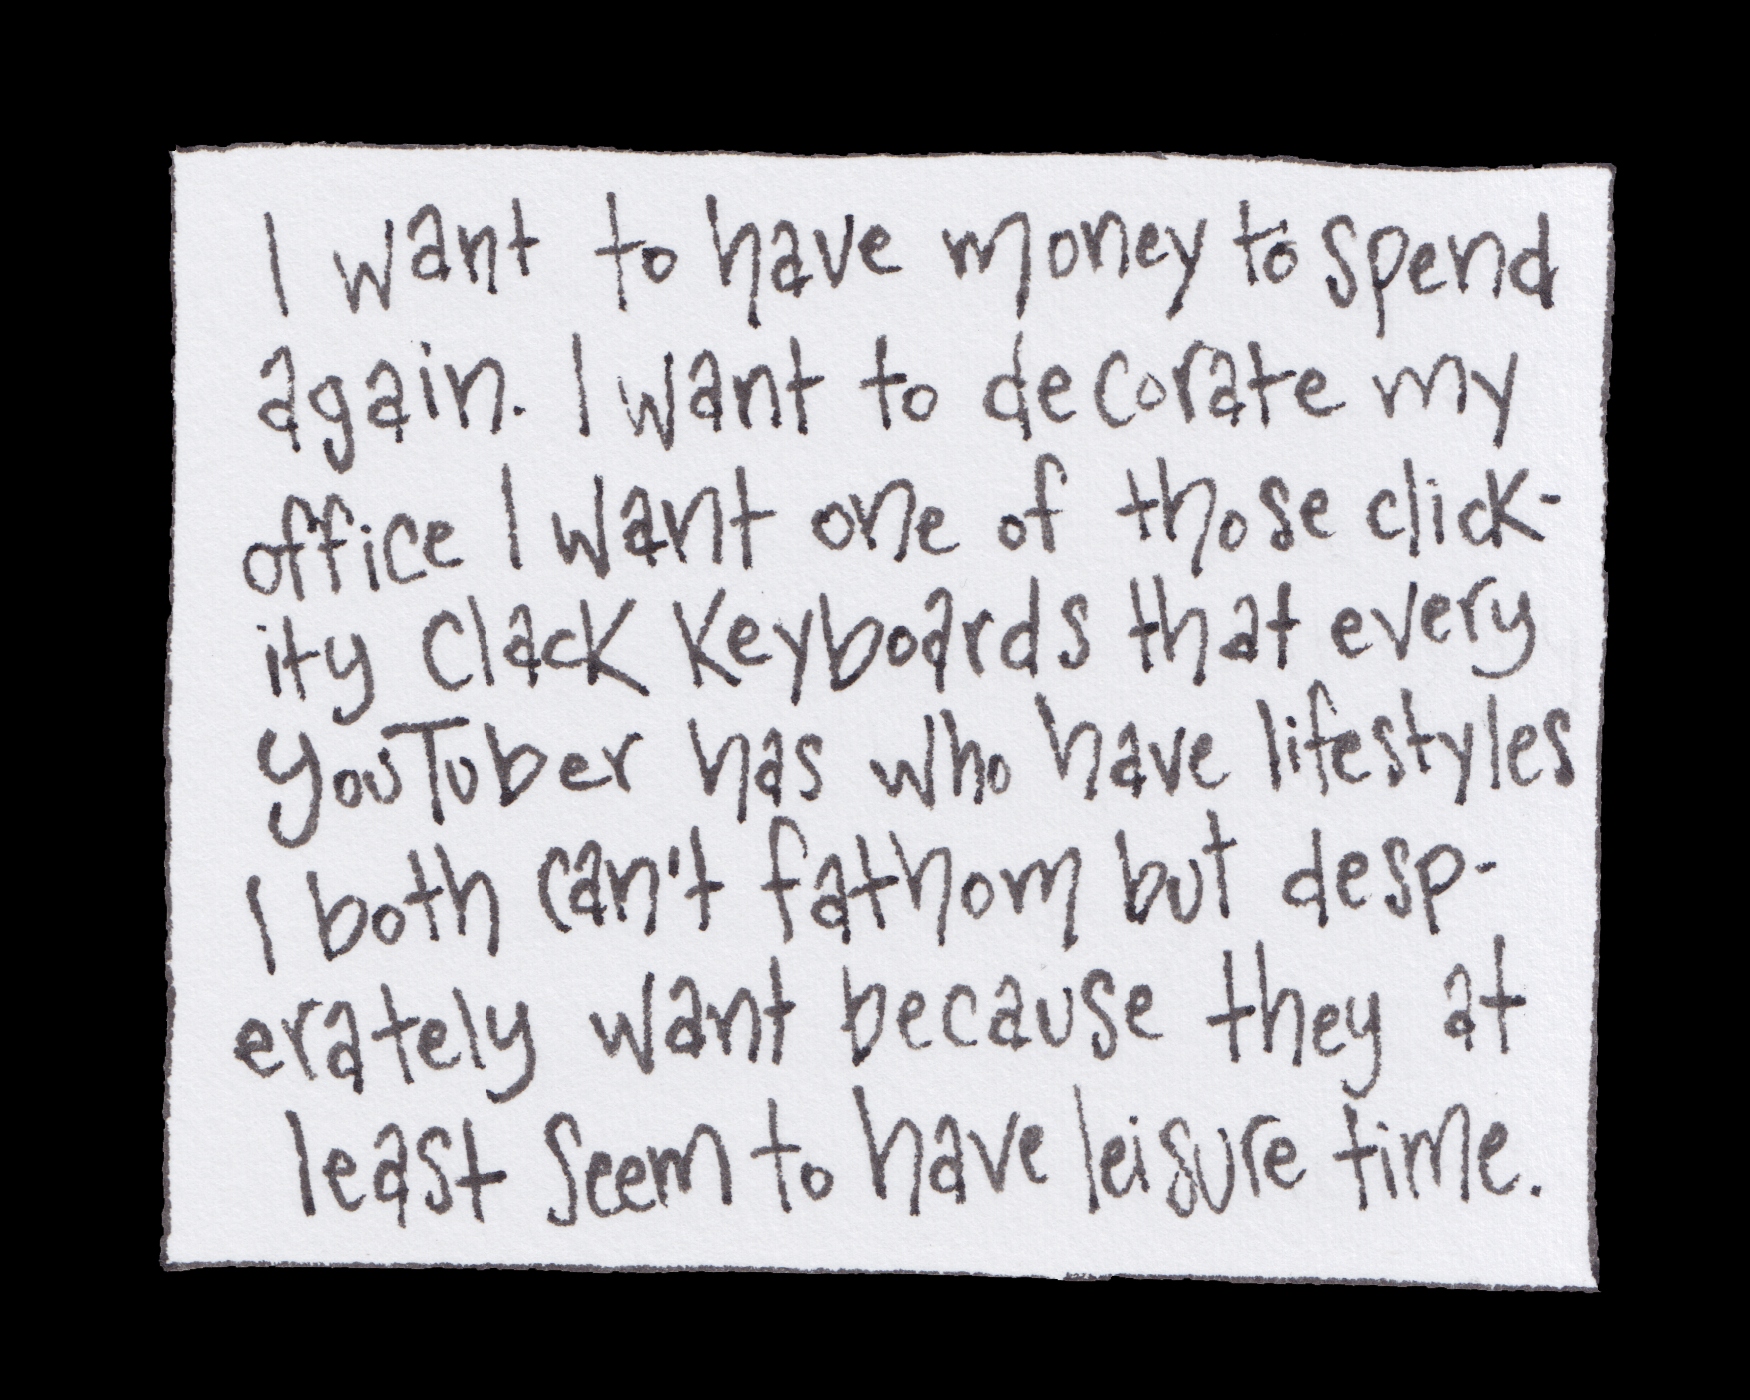 I want to have money to spend
again. I want to decorate my
office I want one of those click-
ity clack keyboards that every
YouTuber has who have lifestyles
I both can't fathom but desp-
erately want because they at
least seem to have leisure time.